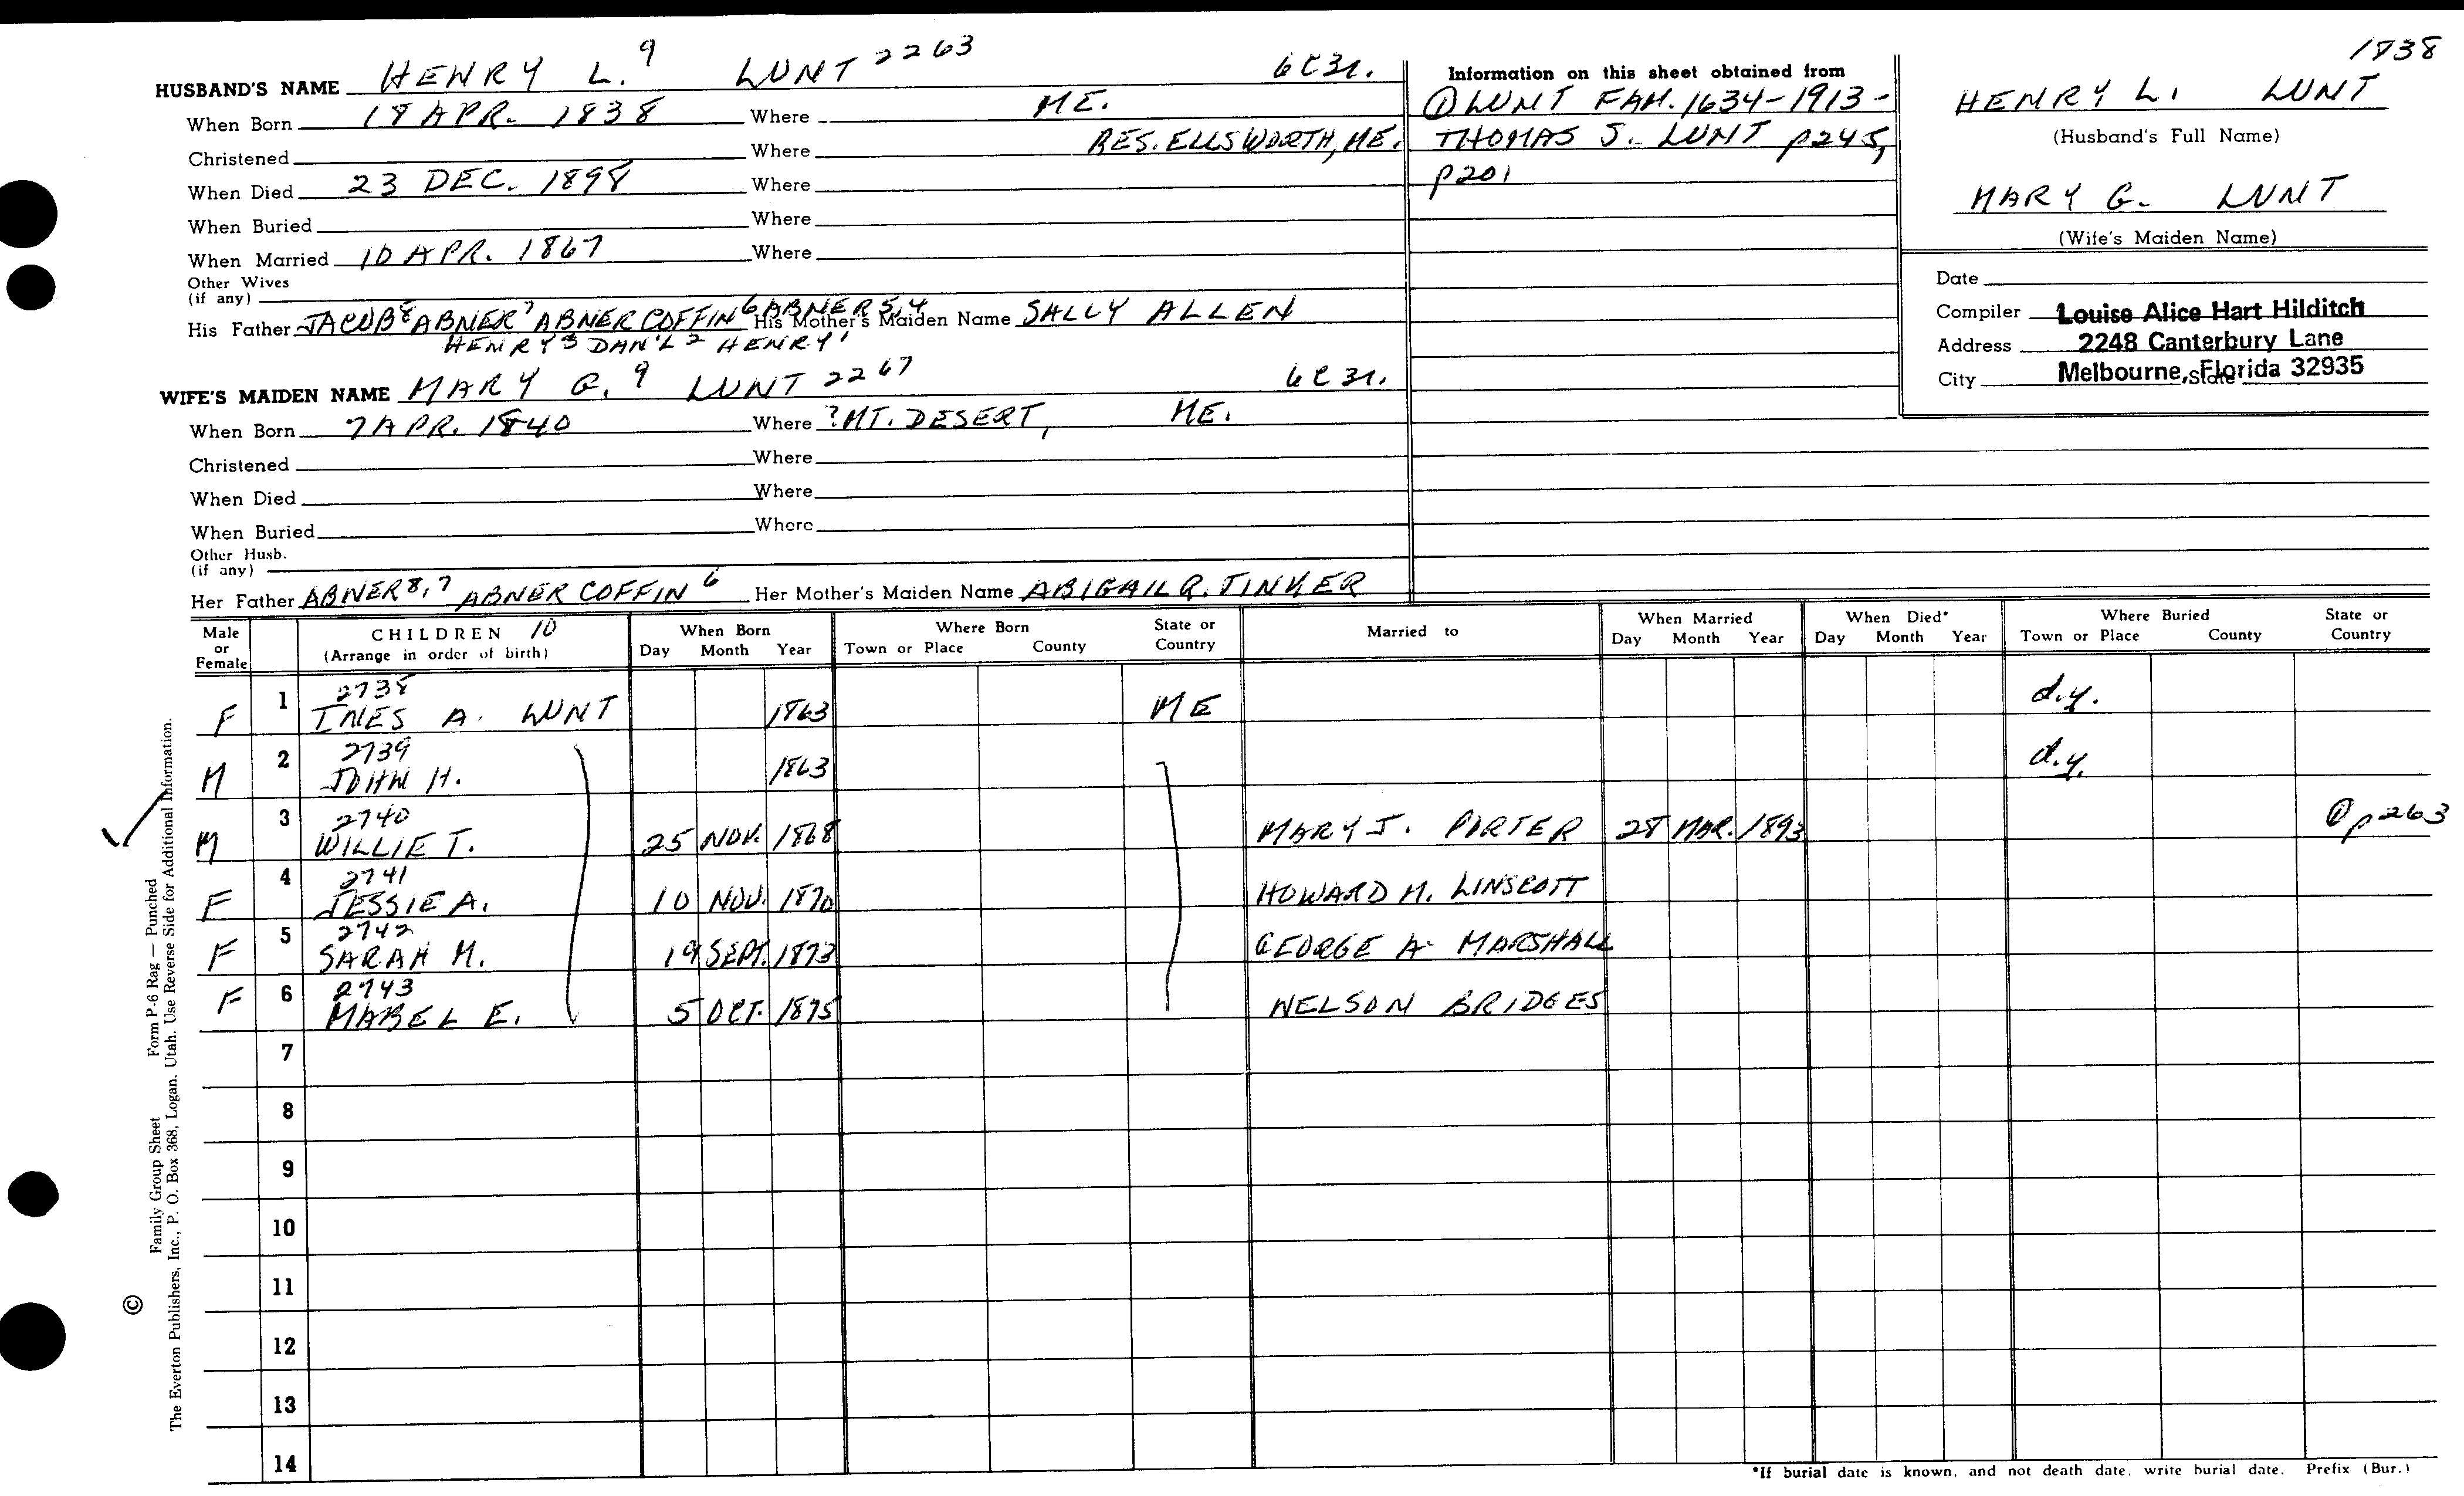 1838
HUSBAND'S NAME HENRY L.⁹ LUNT 2263 6C3r.
When Born 18 APR. 1838 Where ME.
Christened Where RES. ELLSWORTH, ME.
When Died 23 DEC. 1898 Where
When Buried Where
When Married 10 APR. 1867 Where
Other Wives
(if any)
His Father JACOB⁸ ABNER⁷ ABNER COFFIN⁶ ABNER⁵,⁴ His Mother's Maiden Name SALLY ALLEN
HENRY³ DAN'L² HENRY¹
WIFE'S MAIDEN NAME MARY G.⁹ LUNT 2267 6C3r.
When Born 7 APR. 1840 Where ?MT. DESERT, ME.
Christened Where
When Died Where
When Buried Where
Other Husb.
(if any)
Her Father ABNER⁸,⁷ ABNER COFFIN⁶ Her Mother's Maiden Name ABIGAIL R. TINKER
Information on this sheet obtained from
① LUNT FAM. 1634-1913-
THOMAS S. LUNT p245,
p201
HENRY L. LUNT
(Husband's Full Name)
MARY G. LUNT
(Wife's Maiden Name)
Date
Compiler Louise Alice Hart Hilditch
Address 2248 Canterbury Lane
City Melbourne, Florida 32935 State
Male or Female CHILDREN 10 (Arrange in order of birth) When Born Day Month Year Where Born Town or Place County State or Country Married to When Married Day Month Year When Died* Day Month Year Where Buried Town or Place County State or Country
2738
F 1 INES A. LUNT 1863 ME d.y.
2739
M 2 JOHN H. 1863 d.y.
2740
M 3 WILLIE T. 25 NOV. 1868 MARY J. PORTER 28 MAR. 1893 ① p263
2741
F 4 JESSIE A. 10 NOV. 1870 HOWARD M. LINSCOTT
2742
F 5 SARAH M. 19 SEPT. 1873 GEORGE A. MARSHALL
2743
F 6 MABEL E. 5 OCT. 1875 NELSON BRIDGES
7
8
9
10
11
12
13
14
*If burial date is known, and not death date, write burial date. Prefix (Bur.)
© Family Group Sheet Form P-6 Rag — Punched
The Everton Publishers, Inc., P. O. Box 368, Logan, Utah. Use Reverse Side for Additional Information.